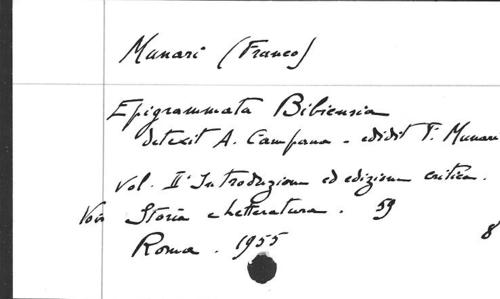 Munari (Franco)
Epigrammata Bibiensia
detexit A. Campana - edidit F. Munari
Vol. II° Introduzione ed edizione critica.
Voir Storia e Letteratura. 59
Roma. 1955
8